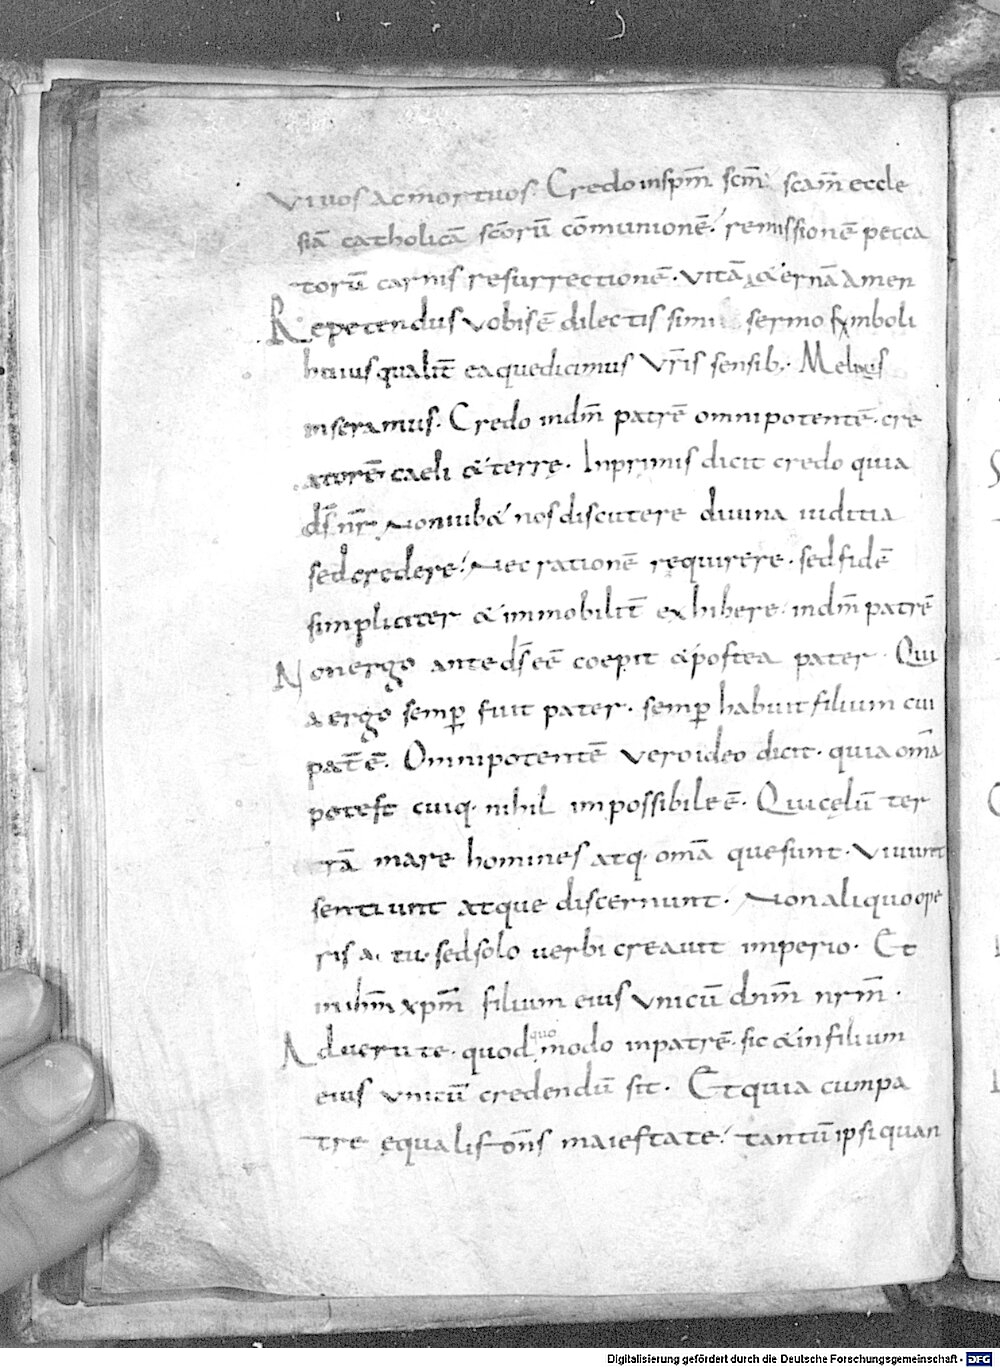 vivos ac mortuos. Credo in sp̄m sc̄m. sc̄am eccle
siā catholicā sc̄orū cōmunionē. remissionē pecca
torū carnis resurrectionē. vitā &ernā amen
Repetendus vobis ē dilectissimi sermo symboli
huius qualit̄ ea que dicimus vr̄is sensib; Melius
inseramus. Credo in dm̄ patrē omnipotentē. cre
atorē caeli & terrę. Inprimis dicit credo quia
ds̄ nr̄ Non iub& nos discutere divina iuditia
sed credere. Nec rationē requirere. sed fidē
simpliciter & immobilit̄ exhibere. in dm̄ patrē
Non ergo ante ds̄ eē coepit & postea pater. Qui
a ergo semp̄ fuit pater. semp̄ habuit filium cui
pat̄ ē. Omnipotentē vero ideo dicit. quia om̄a
potest cuiq. nihil impossibile ē. Qui cęlū ter
rā mare homines atq. om̄a que sunt. vivunt
sentiunt atque discernunt. Non aliquo ope
ris a. tu. sed solo verbi creavit imperio. Et
in ihm̄ xpm̄ filium eius vnicū dnm̄ nrm̄.
Advertite. quod quo modo in patrē. sic & in filium
eius vnicū credendū sit. Et quia cum pa
tre ęqualis om̄s maiestate. tantū ipsi quan
Digitalisierung gefördert durch die Deutsche Forschungsgemeinschaft - DFG